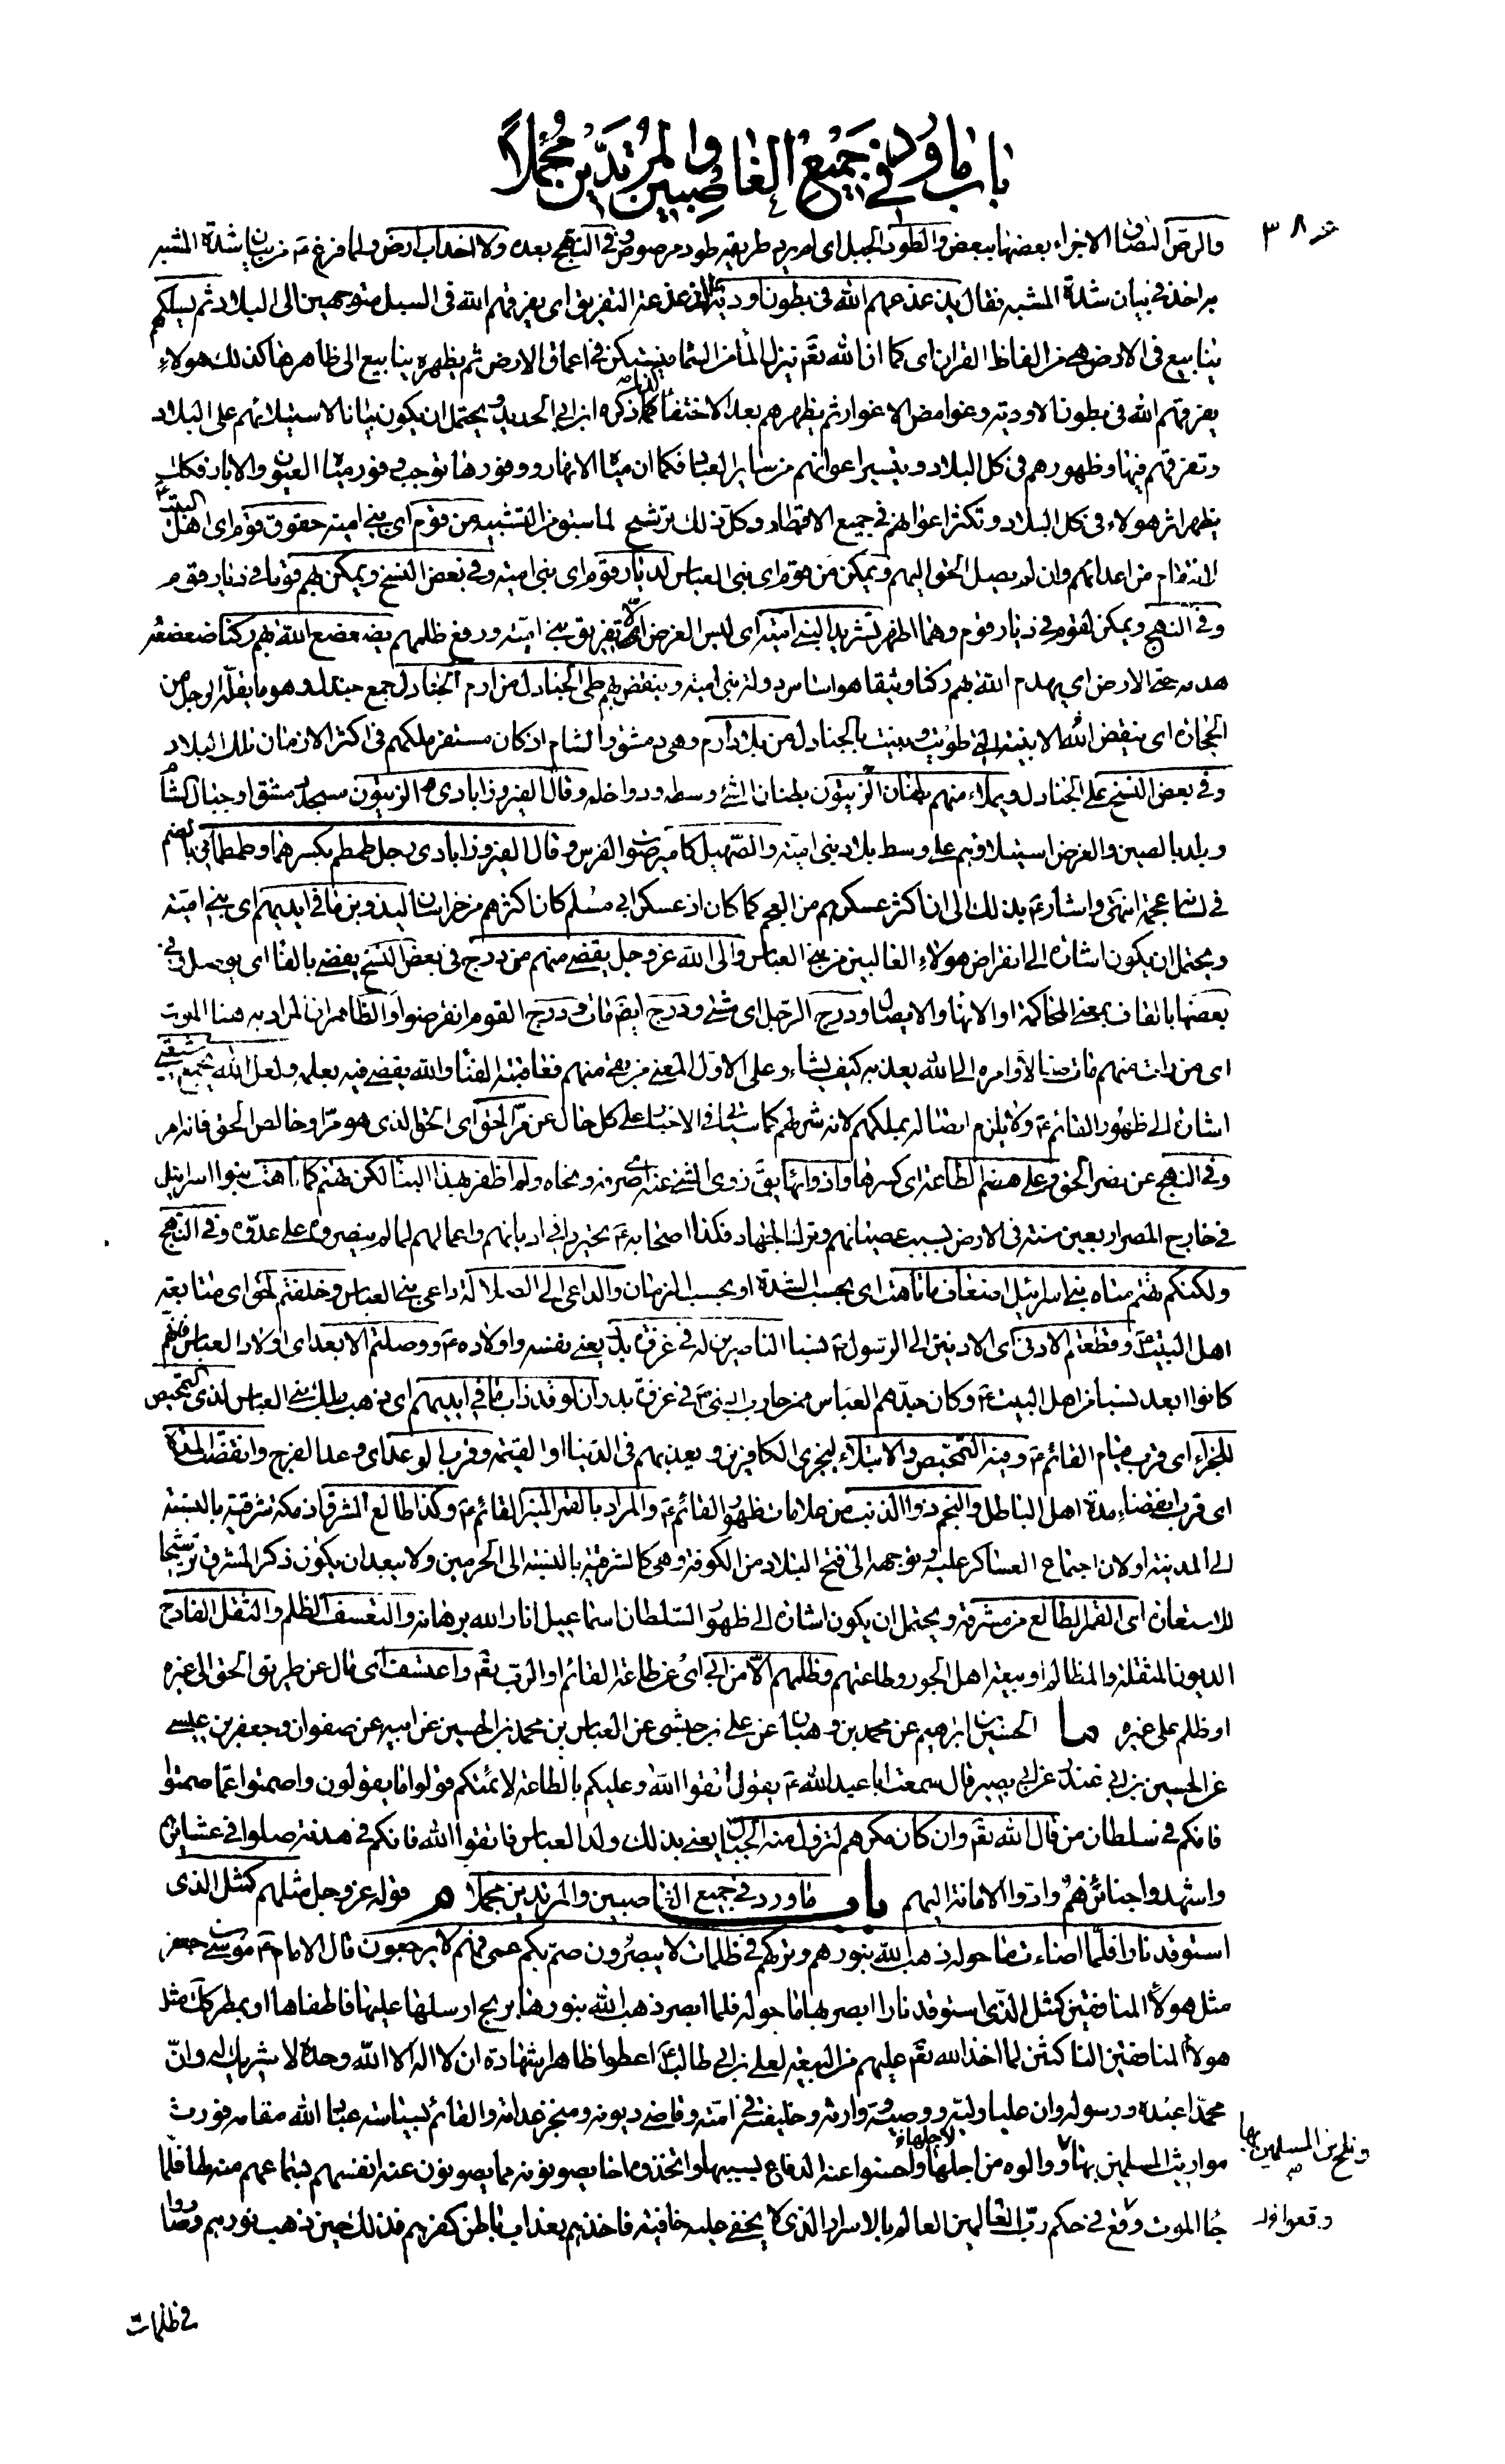 باب ما ورد في جميع الغاصبين والمرتدين مجملاً
٣٨
والرصّ التصاق الاجزاء بعضها ببعض والطود الجبل اى لم يرد طريقه طود مرصوص وفى النهج بعده ولا حداب ارض ولما فرغ ع من بيان شدة المشبه
به اخذ في بيان شدة المشبه فقال يذعذعهم الله في بطون اودية الذعذعة التفريق اى يفرقهم الله في السبل متوجهين الى البلاد ثم يسلكهم
ينابيع فى الارض هى من الفاظ القران اى كما ان الله تعم ينزل الماء من السماء فيستكن في اعماق الارض ثم يظهره ينابيع الى ظاهرها كذلك هولاء
يفرقهم الله فى بطون الاودية وغوامض الاغوار ثم يظهرهم بعد الاختفاء كذا ذكره ابن ابي الحديد ويحتمل ان يكون بيانا لاستيلائهم على البلاد
وتفرقهم فيها وظهورهم في كل البلاد وتيسير اعوانهم من ساير العباد فكما ان مياه الانهار ووفورها توجب وفور مياه العيون والابار فكذلك
يظهر اثر هولاء فى كل البلاد وتكثر اعوانهم في جميع الاقطار وكل ذلك ترشيح لما سبق من التشبيه من قوم اى بني امية حقوق قوم اى اهل البيت
للانتقام من اعدائهم وان لم يصل الحق اليهم ويمكن من قوم اى بنى العباس لديار قوم اى بنى امية وفي بعض النسخ ويمكن بهم قوما في ديار قوم
وفى النهج ويمكن لقوم في ديار قوم وهما اظهر تشريدا لبني امية اى ليس الغرض الا تفريق بني امية ورفع ظلمهم يضعضع الله بهم ركنا ضعضعه
هدمه حتى الارض اى يهدم الله بهم ركنا وثيقا هو اساس دولة بني امية وينقض بهم طى الجنادل من ارم الجنادل جمع جندل وهو ما يقله الرجل من
الحجارة اى ينقض الله الابنية التى طويت وبنيت بالجنادل من بلاد ارم وهى دمشق والشام اذ كان مستقر ملكهم فى اكثر الازمان تلك البلاد
وفي بعض النسخ على الجنادل ويملاء منهم بطنان الزيتون بطنان الشئ وسطه ودواخله وقال الفيروزابادى الزيتون مسجد دمشق او جبال الشام
وبلد بالصين والغرض استيلاؤهم على وسط بلاد بنى امية والصهيل كامير صوت الفرس وقال الفيروزابادى رجل طمطم بكسرهما وطمطمانى بالضم
في لسانه عجمة انتهى واشار ع بذلك الى ان اكثر عسكرهم من العجم كما كان اذ عسكر ابى مسلم كان اكثرهم من خراسان ليذوبن ما فى ايديهم اى بني امية
ويحتمل ان يكون اشارة الى انقراض هولاء الغالبين من بني العباس والى الله عز وجل يقضى منهم من درج في بعض النسخ يفضي بالفاء اى يوصل وفي
بعضها بالقاف بمعنى المحاكمة او الانهاء والايصال ودرج الرجل اى مشى ودرج ايضا مات ودرج القوم انقرضوا والظاهر ان المراد به هنا الموت
اى من مات منهم مات ضالا وامره الى الله يعذبه كيف يشاء وعلى الاول المعنى من بقى منهم فعاقبته الفناء والله يقضى فيه بعلمه ولعل الله يجمع شيعتى
اشارة الى ظهور القائم ع ولا يلزم اتصاله بملكهم لانه شرطهم كما سياتى فى الاخبار على كل حال عن مر الحق اى الحق الذى هو مر او خالص الحق فانه مر
وفى النهج عن نصر الحق وعلى هضم الطاعة اى كسرها وازوائها يق زوى الشئ عنه اى صرفه ونحاه ولم اظفر بهذا البناء لكن تهتم كما تاهت بنوا اسرائيل
في خارج المصر اربعين سنة فى الارض بسبب عصيانهم وترك الجهاد فكذا اصحابه ع تحيروا في اديانهم واعمالهم لما لم ينصروه على عدوه وفى النهج
ولكنكم تهتم متاه بني اسرائيل اضعاف ما تاهت اى بحسب الشدة او بحسب الزمان والداعى الى الضلالة داعى بني العباس وخلفتم الحق اى متابعة
اهل البيت ع وقطعتم الادنى اى الادنين الى الرسول ص نسبا الناصرين له في غزوة بدر يعني نفسه واولاده ع ووصلتم الابعد اى اولاد العباس فانهم
كانوا ابعد نسبا من اهل البيت ع وكان جدهم العباس ممن حارب النبى ص في غزوة بدر ان لو قد ذاب ما في ايديهم اى ذهب ملك بني العباس لدنى التمحيص
للجزاء اى قرب قيام القائم ع وفيه التمحيص والابتلاء ليجزى الكافرين ويعذبهم فى الدنيا او القيمة وقرب الوعد اى وعد الفرج وانقضت المدة
اى قرب انقضاء مدة اهل الباطل والنجم ذو الذنب من علامات ظهور القائم ع والمراد بالقمر المنير القائم ع وكذا طالع المشرق اذ مكة شرقية بالنسبة
الى المدينة او لان اجتماع العساكر عليه وتوجهه الى فتح البلاد من الكوفة وهى كالشرقية بالنسبة الى الحرمين ولا يبعد ان يكون ذكر المشرق ترشيحا
للاستعارة اى القمر الطالع من مشرقه ويحتمل ان يكون اشارة الى ظهور السلطان اسماعيل انار الله برهانه والتعسف الظلم والثقل الفادح
الديون المثقلة والمظالم او بيعة اهل الجور وطاعتهم وظلمهم الا من ابى اى عن طاعة القائم او الرب تعم واعتسف اى مال عن طريق الحق الى غيره
او ظلم على غيره ما الحسين بن ابرهيم عن محمد بن وهبان عن على بن حبشى عن العباس بن محمد بن الحسين عن ابيه عن صفوان وجعفر بن عيسى
عن الحسين بن ابي غندر عن ابي بصير قال سمعت ابا عبد الله ع يقول اتقوا الله وعليكم بالطاعة لائمتكم قولوا ما يقولون واصمتوا عما صمتوا
فانكم فى سلطان من قال الله تعم وان كان مكرهم لتزول منه الجبال يعني بذلك ولد العباس فاتقوا الله فانكم في هدنة صلوا في عشائرهم
واشهدوا جنائزهم وادوا الامانة اليهم باب ما ورد في جميع الغاصبين والمرتدين مجملا م قوله عز وجل مثلهم كمثل الذى
استوقد نارا فلما اضاءت ما حوله ذهب الله بنورهم وتركهم في ظلمات لا يبصرون صم بكم عمى فهم لا يرجعون قال الامام ع موسى بن جعفر
مثل هولاء المنافقين كمثل الذى استوقد نارا ابصر بها ما حوله فلما ابصر ذهب الله بنورها بريح ارسلها عليها فاطفاها او بمطر كذلك مثل
هولاء المنافقين الناكثين لما اخذ الله تعم عليهم من البيعة لعلي بن ابي طالب ع اعطوا ظاهرا شهادة ان لا اله الا الله وحده لا شريك له وان
محمدا عبده ورسوله وان عليا وليه ووصيه ووارثه وخليفته في امته وقاضي ديونه ومنجز عداته والقائم بسياسة عباد الله مقامه فورث
مواريث المسلمين بها ووالوه من اجلها واحسنوا عنه الدفاع بسببها واتخذوه اخا يصونونه مما يصونون عنه انفسهم بسماعهم منه لها فلما
ونكح فى المسلمين بها
لاجلها
جاء الموت وقع في حكم رب العالمين العالم بالاسرار الذى لا يخفى عليه خافية فاخذهم بعذاب باطن كفرهم فذلك حين ذهب نورهم وصاروا
وقعوا
في ظلمات